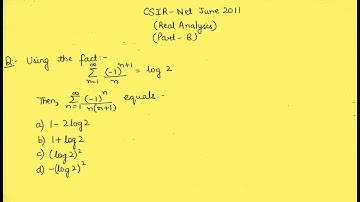 CSIR-Net June 2011
(Real Analysis)
(Part-B)
Q:- Using the fact:-
∑_{n=1}^{∞} (-1)^{n+1}/n = log 2
Then, ∑_{n=1}^{∞} (-1)^n/n(n+1) equals:-
a) 1-2log2
b) 1+log2
c) (log2)^2
d) -(log2)^2